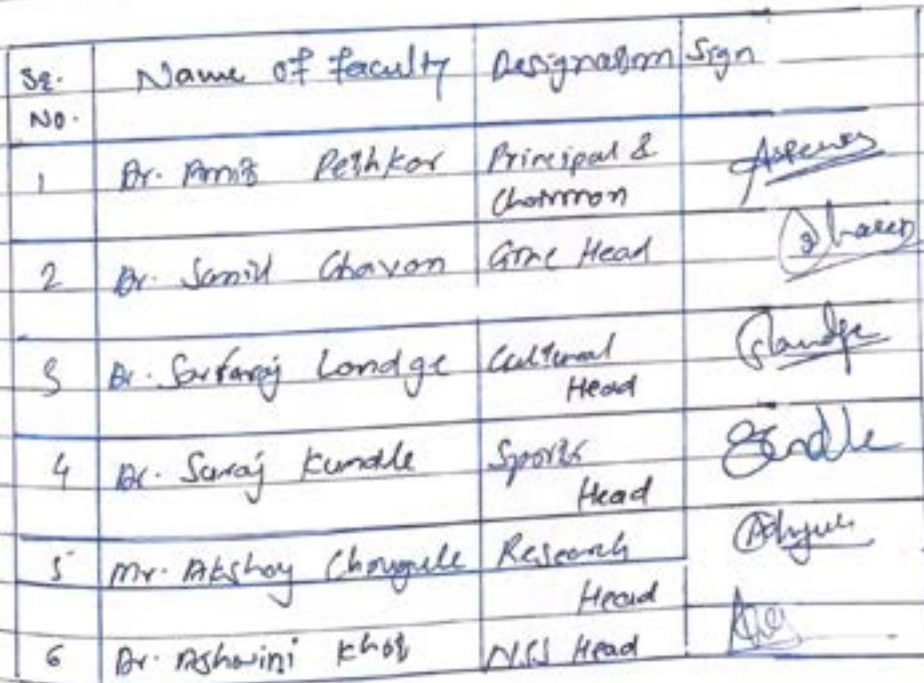 Sr. Name of faculty Designation Sign
No.
1 Dr. Amit Pethkar Principal &
Chairman
2 Dr. Sunil Chavan Head
3 Dr. Sarfaraj Londge Cultural
Head
4 Dr. Suraj Kumdle Sports
Head
5 Mr. Akshay Chougule Research
Head
6 Dr. Ashwini Khot NSS Head